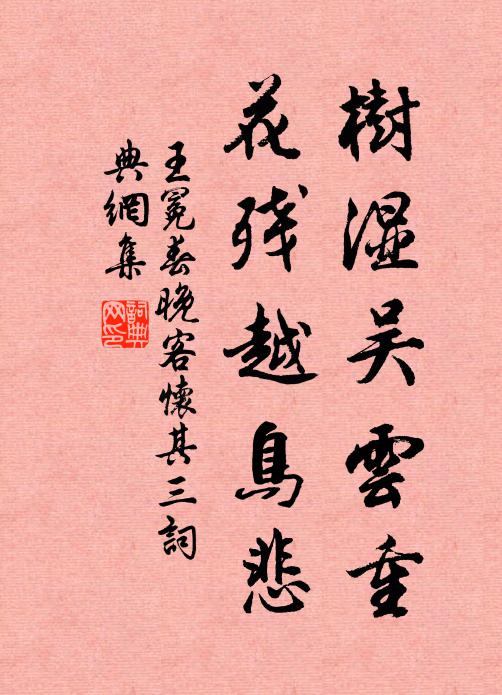 樹湿吴雲重
花残越鳥悲
王冕春晚客懷其三詞
典網集
詞典网印